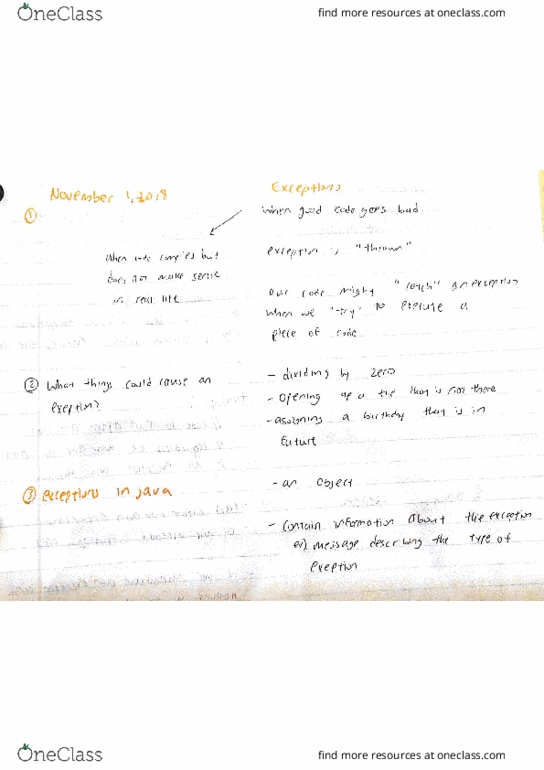 OneClass
find more resources at oneclass.com
November 1, 2018
Exceptions
①
When good code goes bad
When code compiles but
does not make sense
in real life
exception is "thrown"
Our code might "catch" an exception
when we "try" to execute a
piece of code
② What things could cause an
exeption?
- dividing by zero
- Opening up a file that is not there
- assigning a birthday that is in
future
③ exceptions in java
- an Object
- Contain information about the exception
ex) message describing the type of
exeption
OneClass
find more resources at oneclass.com